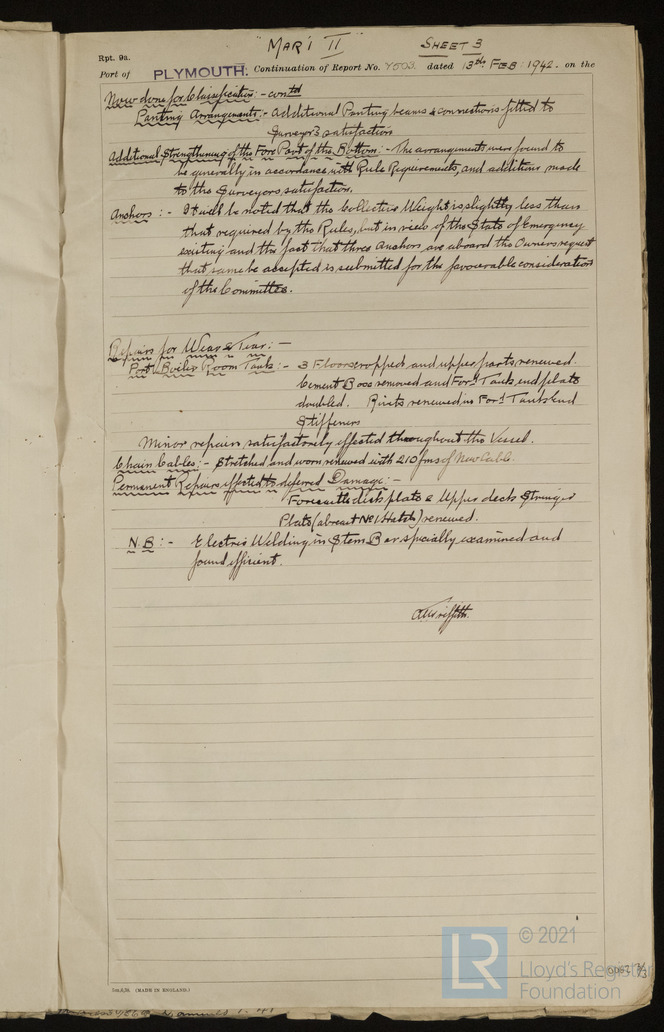 "MARI II" SHEET 3
Rpt. 9a.
Port of PLYMOUTH. Continuation of Report No. 7503. dated 13th. FEB: 1942. on the
Now done for Classification:- contd
Panting Arrangements:- Additional Panting beams & connections fitted to
Surveyor's satisfaction
Additional Strengthening of the Fore Part of the Bottom:- The arrangements were found to
be generally in accordance with Rule Requirements, and additions made
to the Surveyors satisfaction.
Anchors:- It will be noted that the Collective Weight is slightly less than
that required by the Rules, but in view of the State of Emergency
existing and the fact that three anchors are aboard the Owners request
that same be accepted is submitted for the favourable consideration
of the Committee.
Repairs for Wear & Tear:-
Port Boiler Room Tank:- 3 Floors cropped and upper parts renewed.
Cement Boss removed and For'd Tank end plate
doubled. Rivets renewed in For'd Tank end
Stiffeners
Minor repairs satisfactorily effected throughout the Vessel.
Chain Cables:- Stretched and worn renewed with 210 fms of New Cable.
Permanent Repairs effected to deferred Damage:-
Forecastle deck plate & Upper deck Stringer
Plate (abreast No 1 Hatch) renewed.
N.B:- Electric Welding in Stem Bar specially examined and
found efficient.
A.W. Griffith.
(MADE IN ENGLAND.)
© 2021
LR Lloyd's Register
Foundation